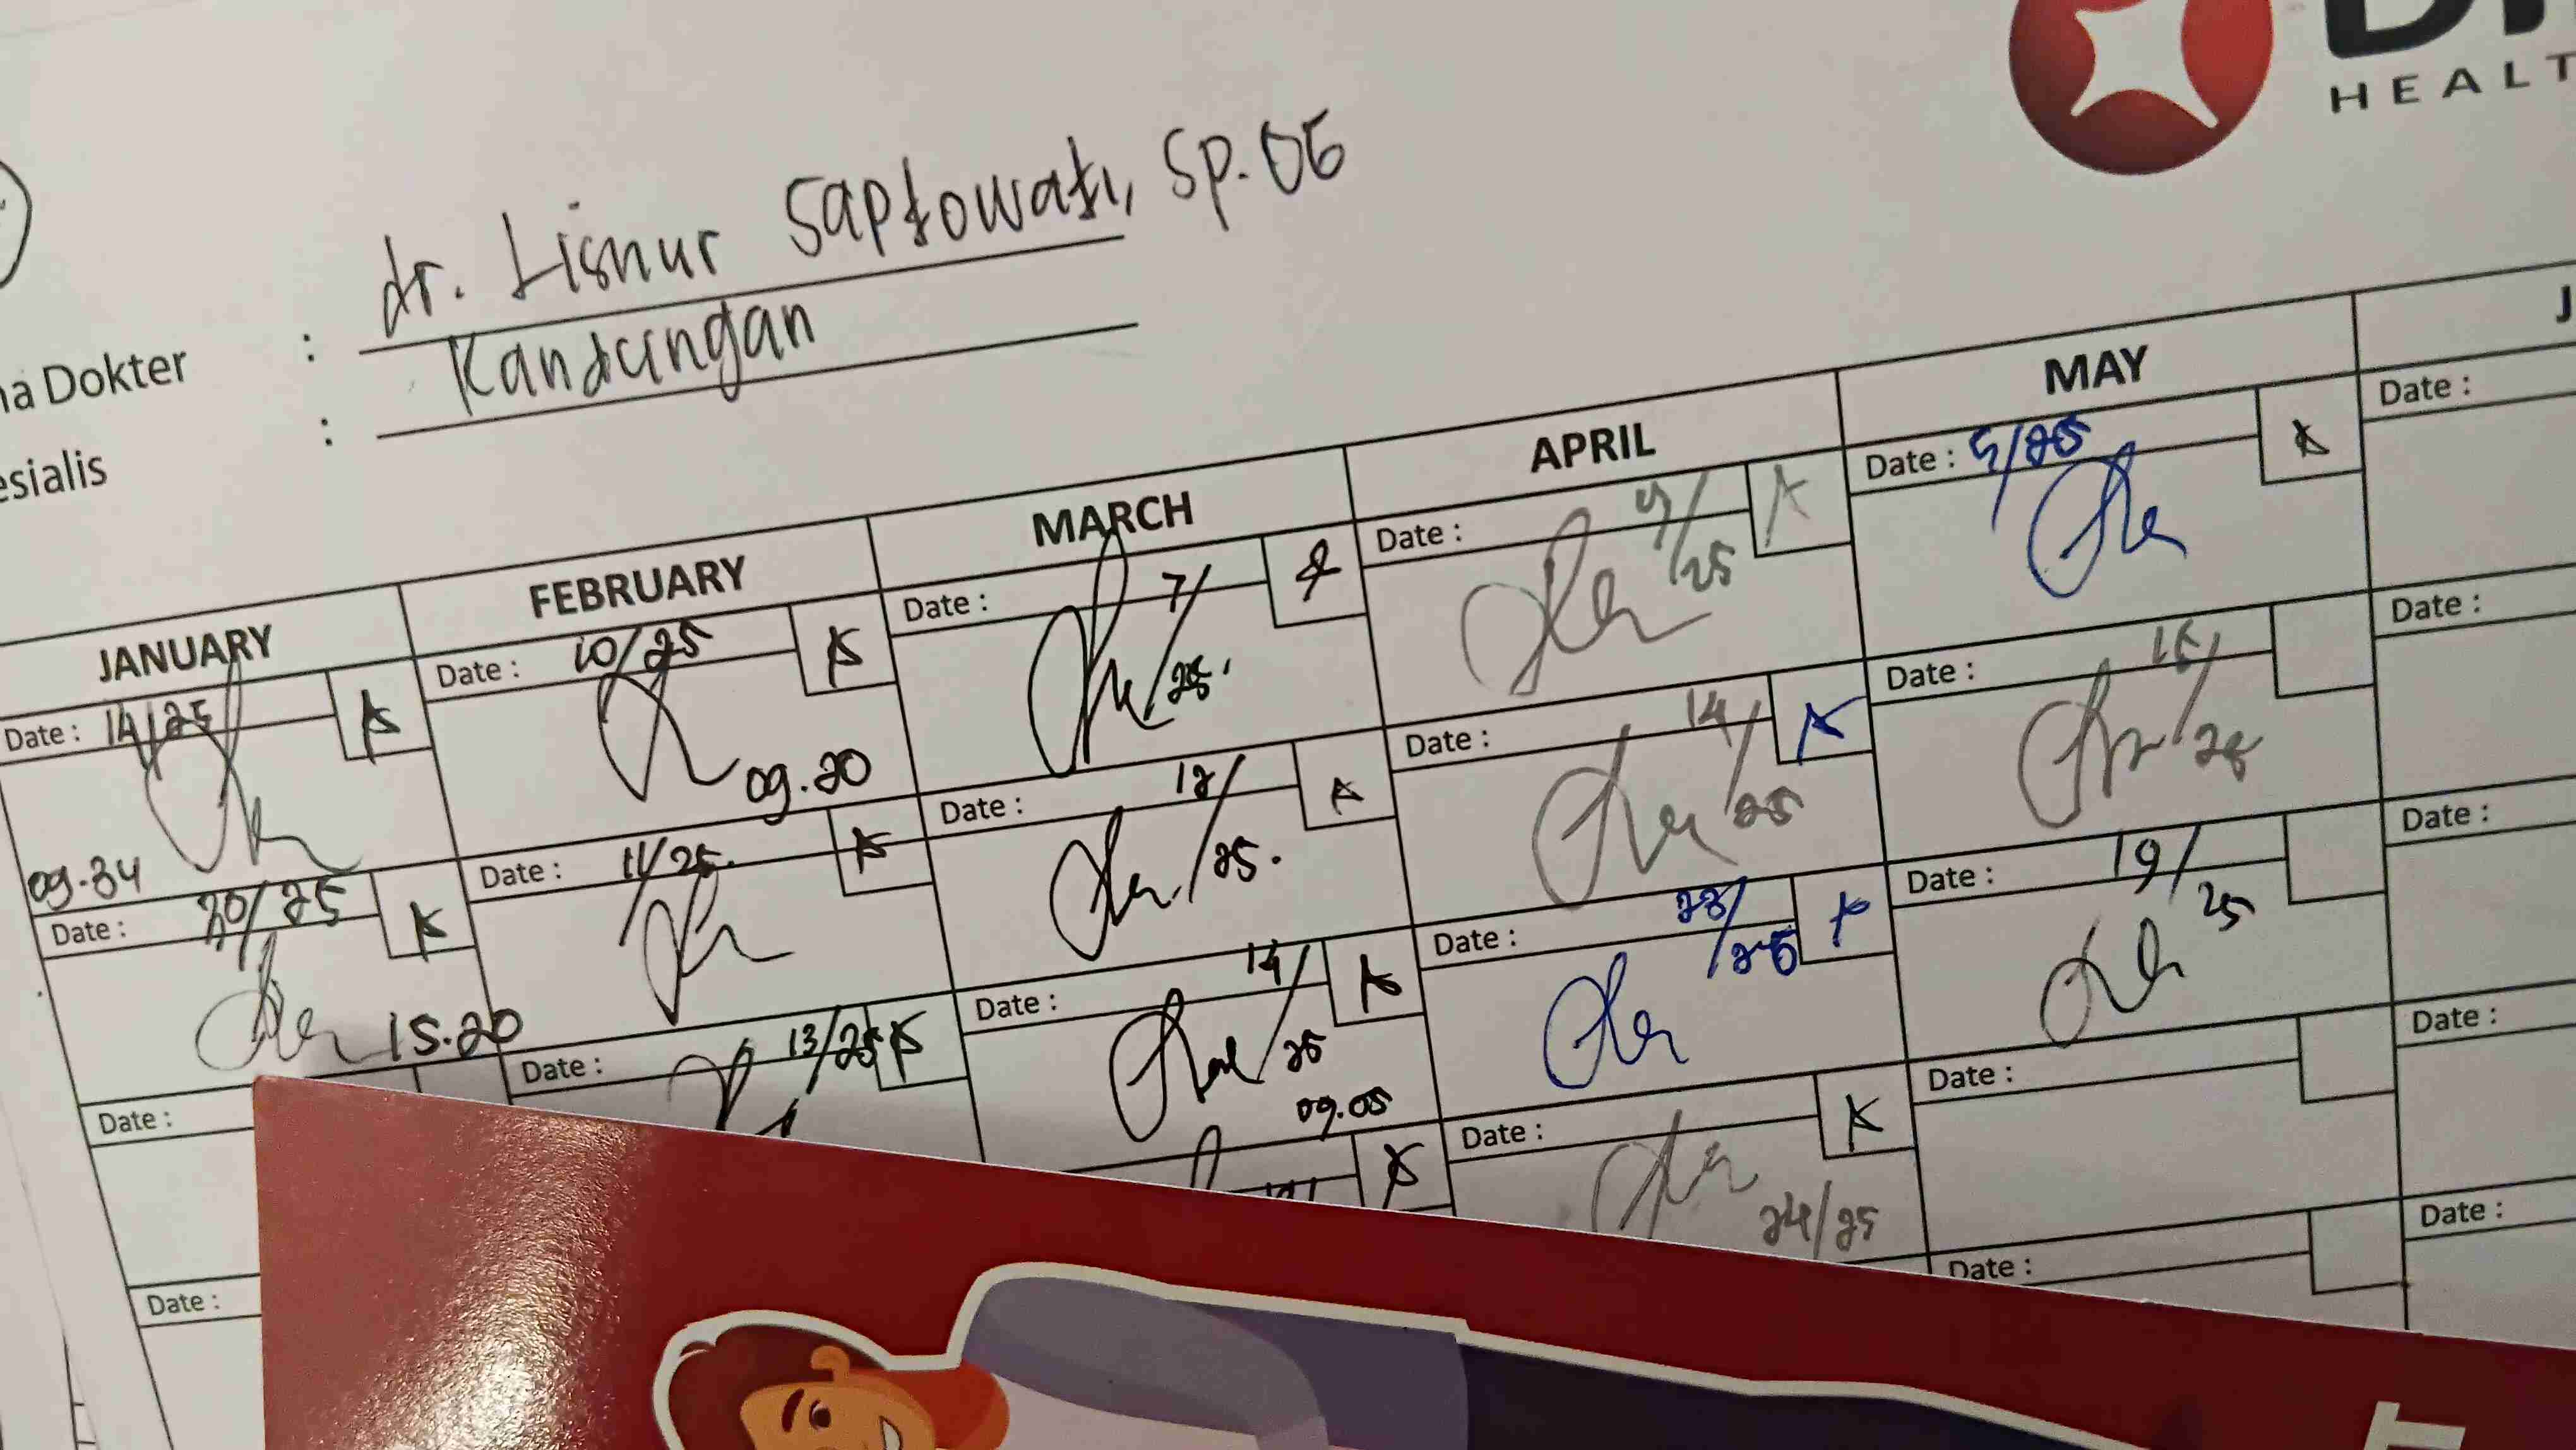 HEALT
dr. Lisnur Saptowati, Sp.OG
Dokter :
Kandungan
:
JANUARY FEBRUARY MARCH APRIL MAY
Date : 14/25
09.34
Date : 20/25
15.20
Date :
Date :
Date : 10/25
09.20
Date : 11/25.
Date : 13/25
Date : 7/25.
Date : 12/25.
Date : 14/25
09.05
Date : 9/25
Date : 14/25
Date : 23/25
Date : 24/25
Date : 5/25
Date : 15/25
Date : 19/25
Date :
Date :
Date :
Date :
Date :
Date :
Date :